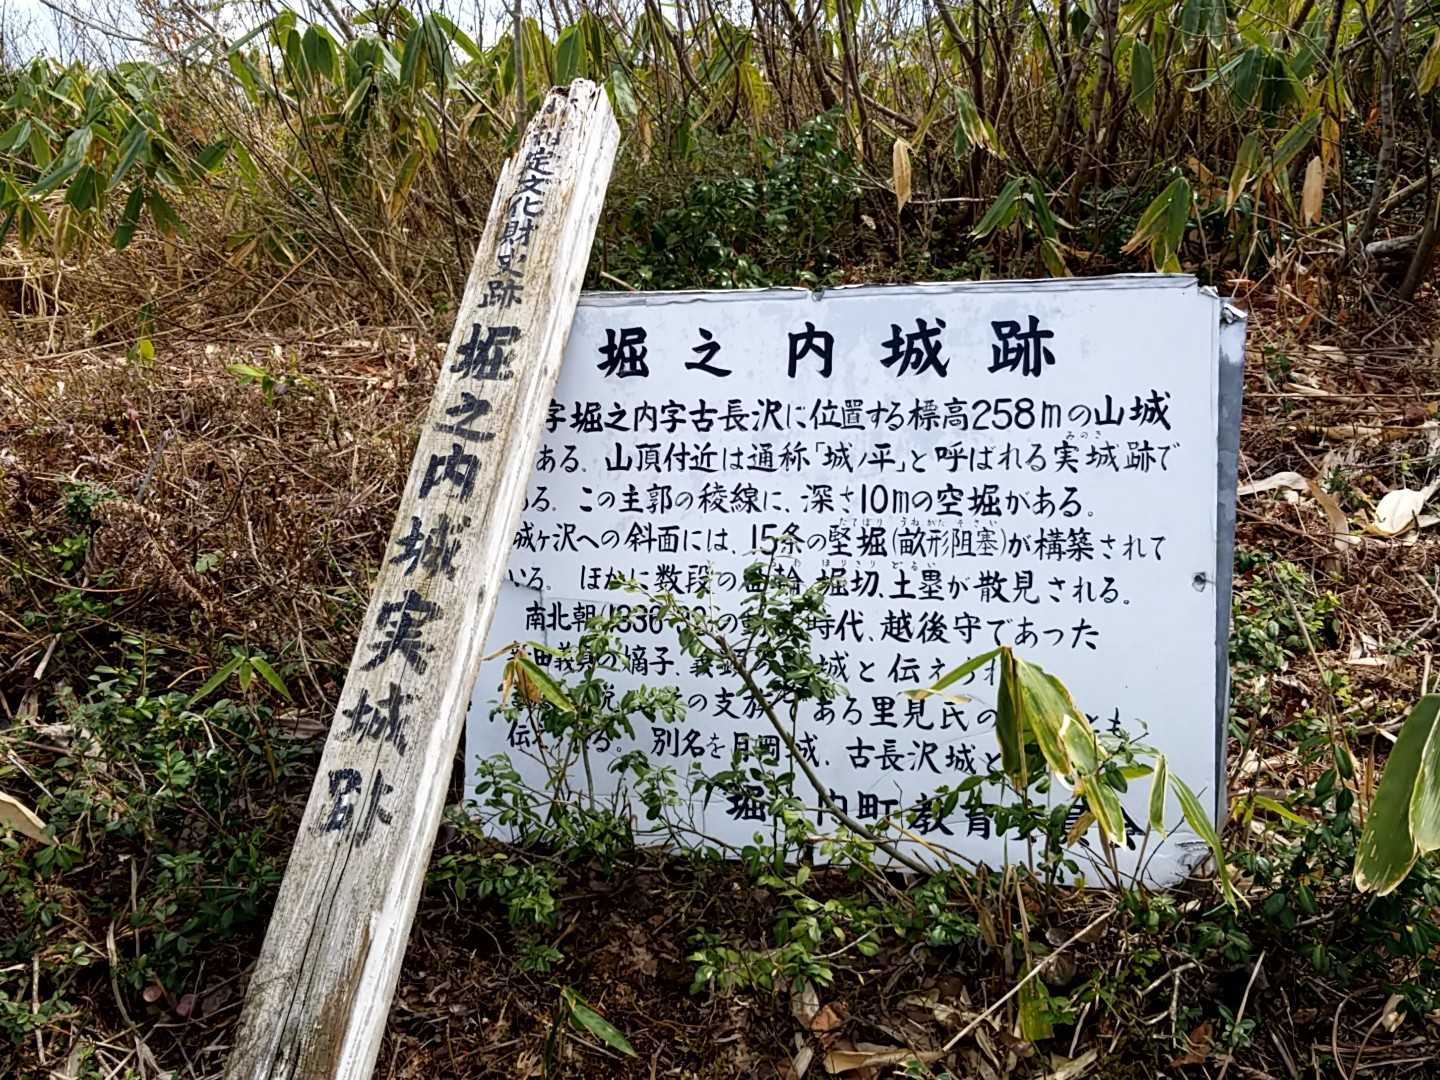 定文化財史跡 堀之内城実城跡
堀之内城跡
字堀之内字古長沢に位置する標高258mの山城
ある。山頂付近は通称「城ノ平」と呼ばれる実城跡で
みのき
ある。この主郭の稜線に、深さ10mの空堀がある。
たてぼり うねがた そさい
城ヶ沢への斜面には、15条の竪堀(畝形阻塞)が構築されて
ほりきり どるい
いる。ほかに数段の 堀切、土塁が散見される。
南北朝(1336 の 時代、越後守であった
義 の嫡子、義顕の 城と伝えられ
説 の支族である里見氏の とも
伝 る。別名を月岡城、古長沢城と
堀之内町教育委員会